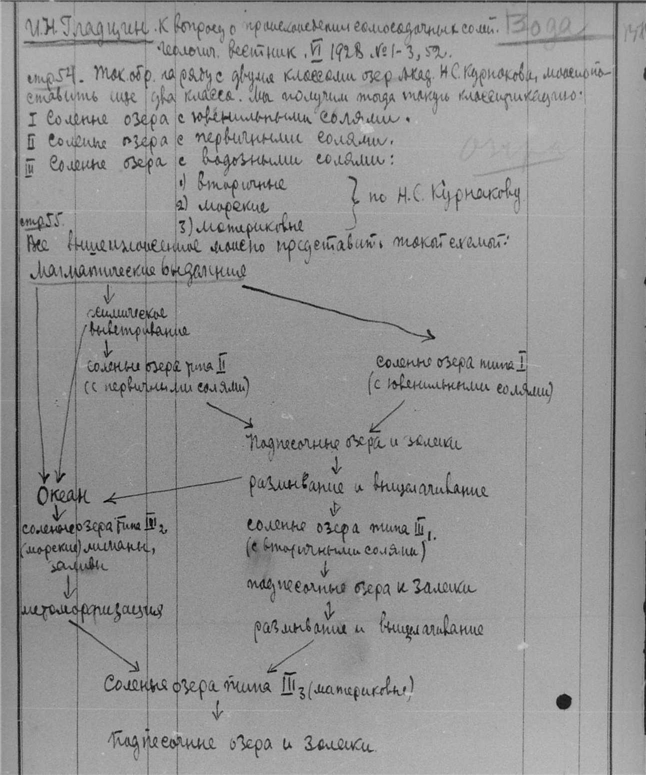 И.Н. Гладцин. К вопросу о происхождении самосадочных солей. Вода
Геологич. вестник. VI 1928 №1-3, 52.
стр 54. Так. обр. наряду с двумя классами озер Акад. Н.С. Курнакова, можно по-
ставить еще два класса. Мы получим тогда такую классификацию:
I Соленые озера с ювенильными солями.
II Соленые озера с первичными солями.
Озера
III Соленые озера с вадозными солями:
1) вторичные
2) морские } по Н.С. Курнакову
3) материковые
стр 55.
Все вышеизложенное можно представить такой схемой:
Магматические выделения
химическое
выветривание
соленые озера типа II
(с первичными солями)
соленые озера типа I
(с ювенильными солями)
Подпесочные озера и залежи
Океан
размывание и выщелачивание
соленые озера типа III2
(морские) лиманы,
заливы
соленые озера типа III1.
(с вторичными солями)
подпесочные озера и залежи
метаморфизация
размывание и выщелачивание
Соленые озера типа III3 (материковые)
Подпесочные озера и залежи